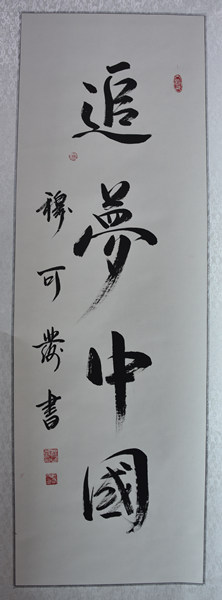 追夢中國
穆可發書